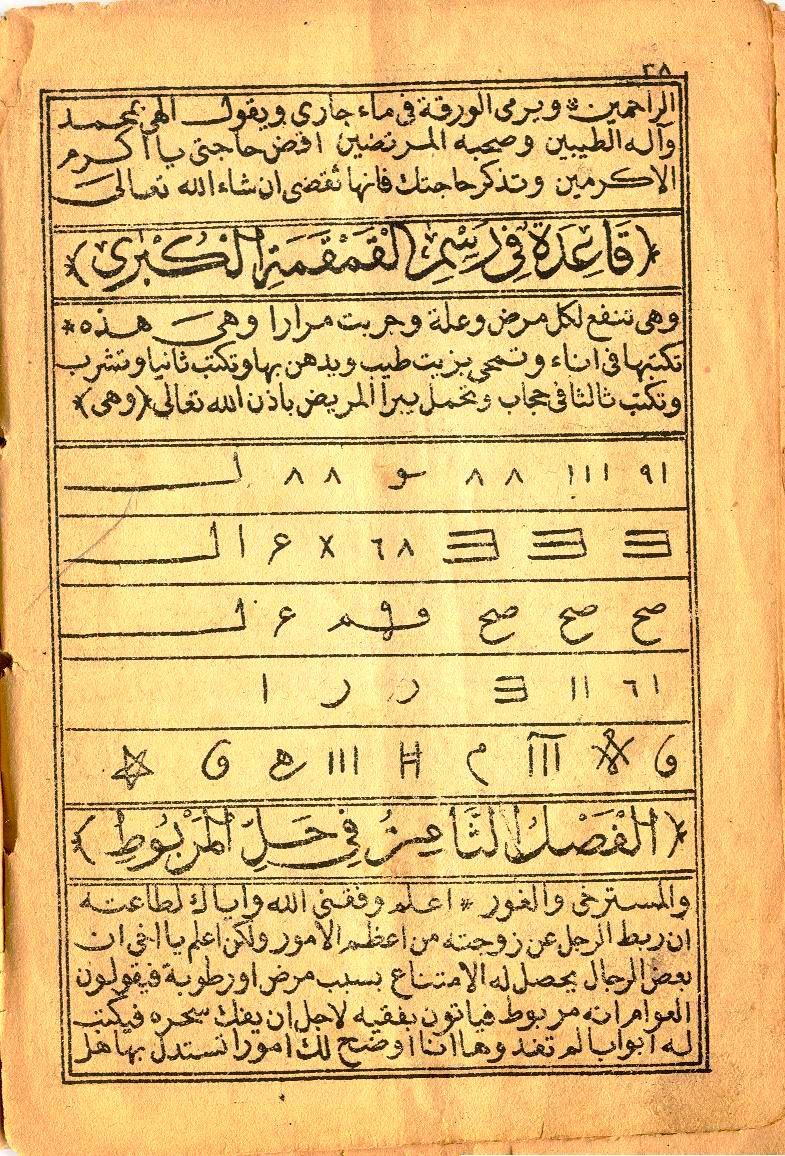 ٣٨
الراحمين * ويرمى الورقة فى ماء جارى ويقول الهى بمحمد
وآله الطيبين وصحبه المرتضين اقض حاجتى يا اكرم
الاكرمين وتذكر حاجتك فانها تقضى ان شاء الله تعالى
﴿قَاعِدَةٌ فِى رَسْمِ الْقَمْقَمَةِ الْكُبْرى﴾
وهى تنفع لكل مرض وعلة وجربت مرارا وهى هذه *
تكتبها فى اناء وتمحى بزيت طيب ويدهن بها وتكتب ثانيا وتشرب
وتكتب ثالثا فى حجاب وتحمل يبرا المريض باذن الله تعالى ﴿وهى﴾
٩١ ١١١ ٨ ٨ و ٨ ٨ لـ
٦٨ x ع ا لـ
صح صح صح ع لـ
٦١ ١١ ر ر ا
﴿الْفَصْلُ الثَّامِنُ فِى حَلِّ الْمَرْبُوطِ﴾
والمسترخى والغور * اعلم وفقنى الله واياك لطاعته
ان ربط الرجل عن زوجته من اعظم الامور ولكن اعلم يا اخى ان
بعض الرجال يحصل له الامتناع بسبب مرض او رطوبة فيقولون
العوام انه مربوط فياتون بفقيه لاجل ان يفك سحره فيكتب
له ابوابا لم تفد وها انا اوضح لك امورا تستدل بها هل